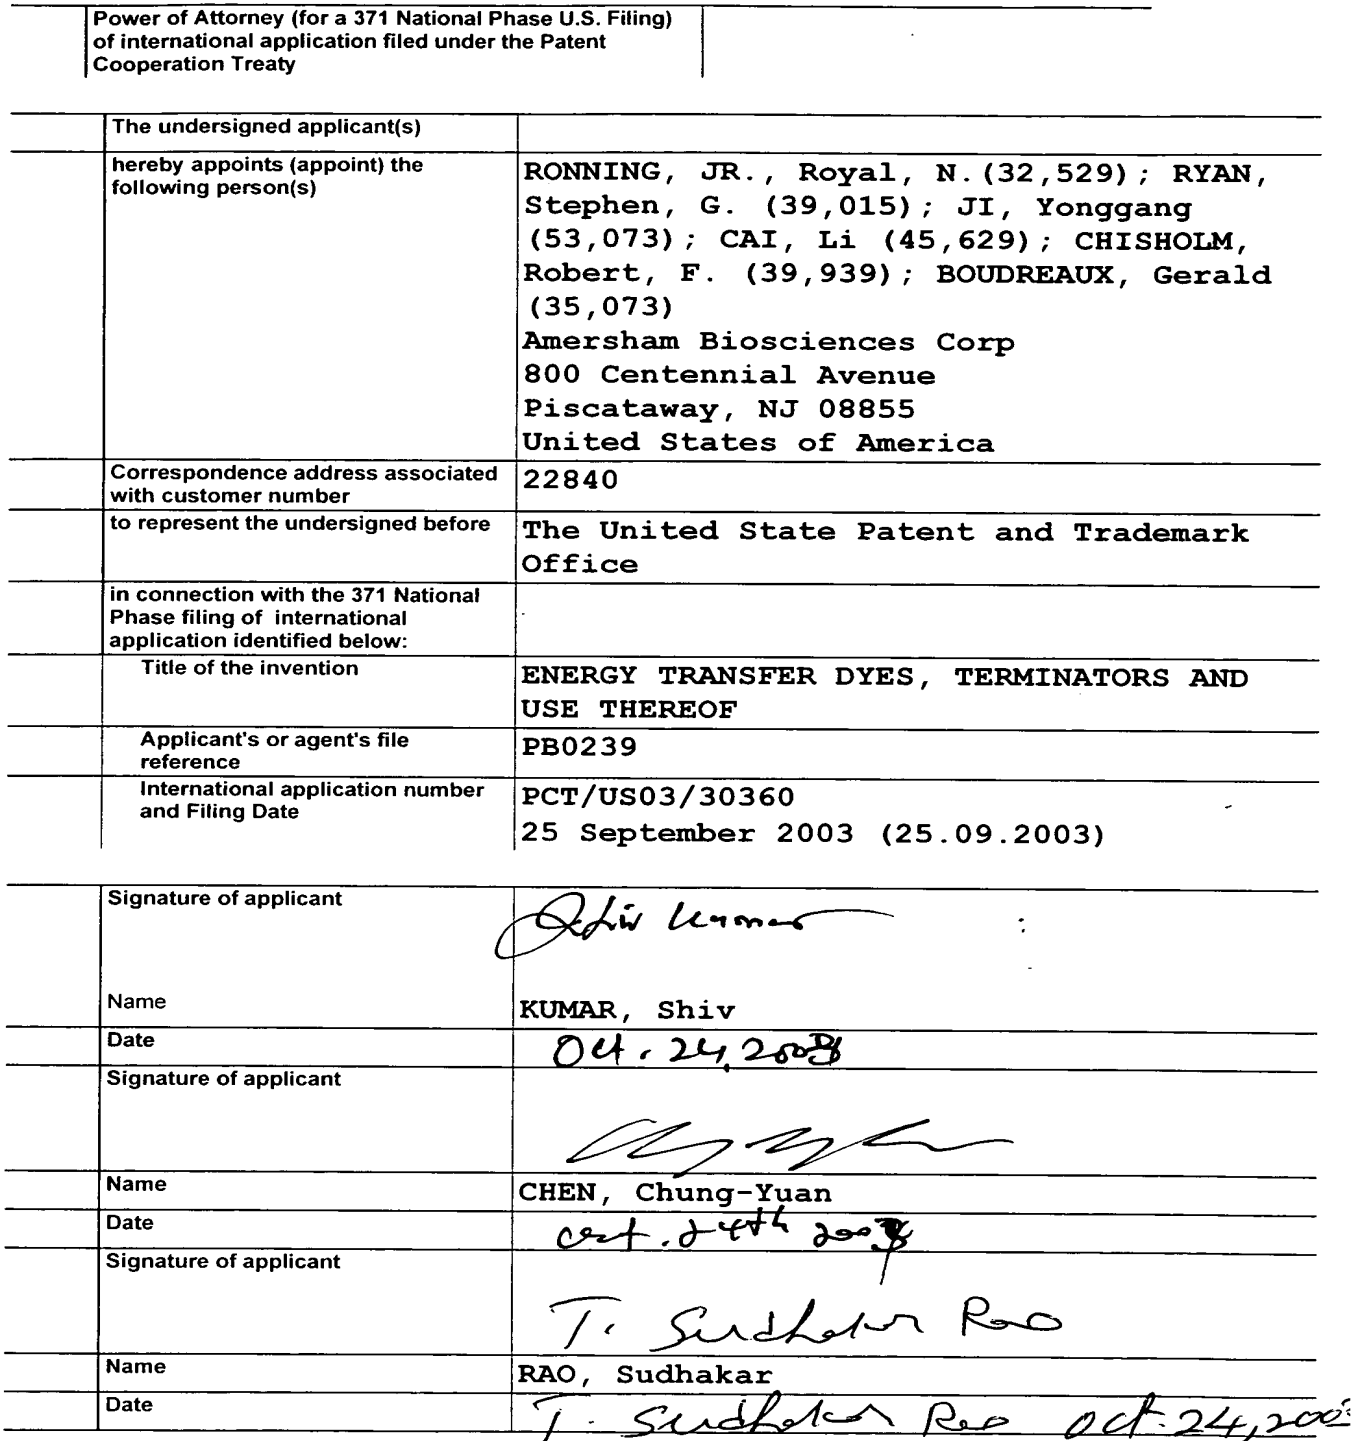 Power of Attorney (for a 371 National Phase U.S. Filing)
of international application filed under the Patent
Cooperation Treaty
The undersigned applicant(s)
hereby appoints (appoint) the
following person(s)
RONNING, JR., Royal, N.(32,529); RYAN,
Stephen, G. (39,015); JI, Yonggang
(53,073); CAI, Li (45,629); CHISHOLM,
Robert, F. (39,939); BOUDREAUX, Gerald
(35,073)
Amersham Biosciences Corp
800 Centennial Avenue
Piscataway, NJ 08855
United States of America
Correspondence address associated
with customer number
22840
to represent the undersigned before
The United State Patent and Trademark
Office
in connection with the 371 National
Phase filing of international
application identified below:
Title of the invention
ENERGY TRANSFER DYES, TERMINATORS AND
USE THEREOF
Applicant's or agent's file
reference
PB0239
International application number
and Filing Date
PCT/US03/30360
25 September 2003 (25.09.2003)
Signature of applicant
Shiv Kumar
Name
KUMAR, Shiv
Date
Oct. 24, 
Signature of applicant
Name
CHEN, Chung-Yuan
Date
Oct. 24th 
Signature of applicant
T. Sudhakar Rao
Name
RAO, Sudhakar
Date
T. Sudhakar Rao Oct. 24, 2003